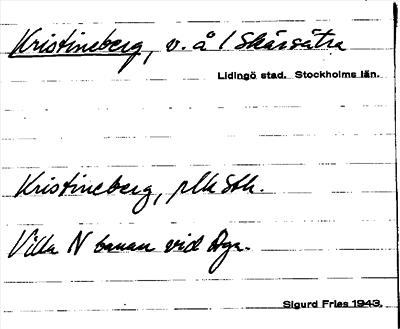 Kristineberg, v. å / Skärsätra
Lidingö stad. Stockholms län.
Kristineberg, plk Sth.
Villa N banan vid
Sigurd Fries 1943.